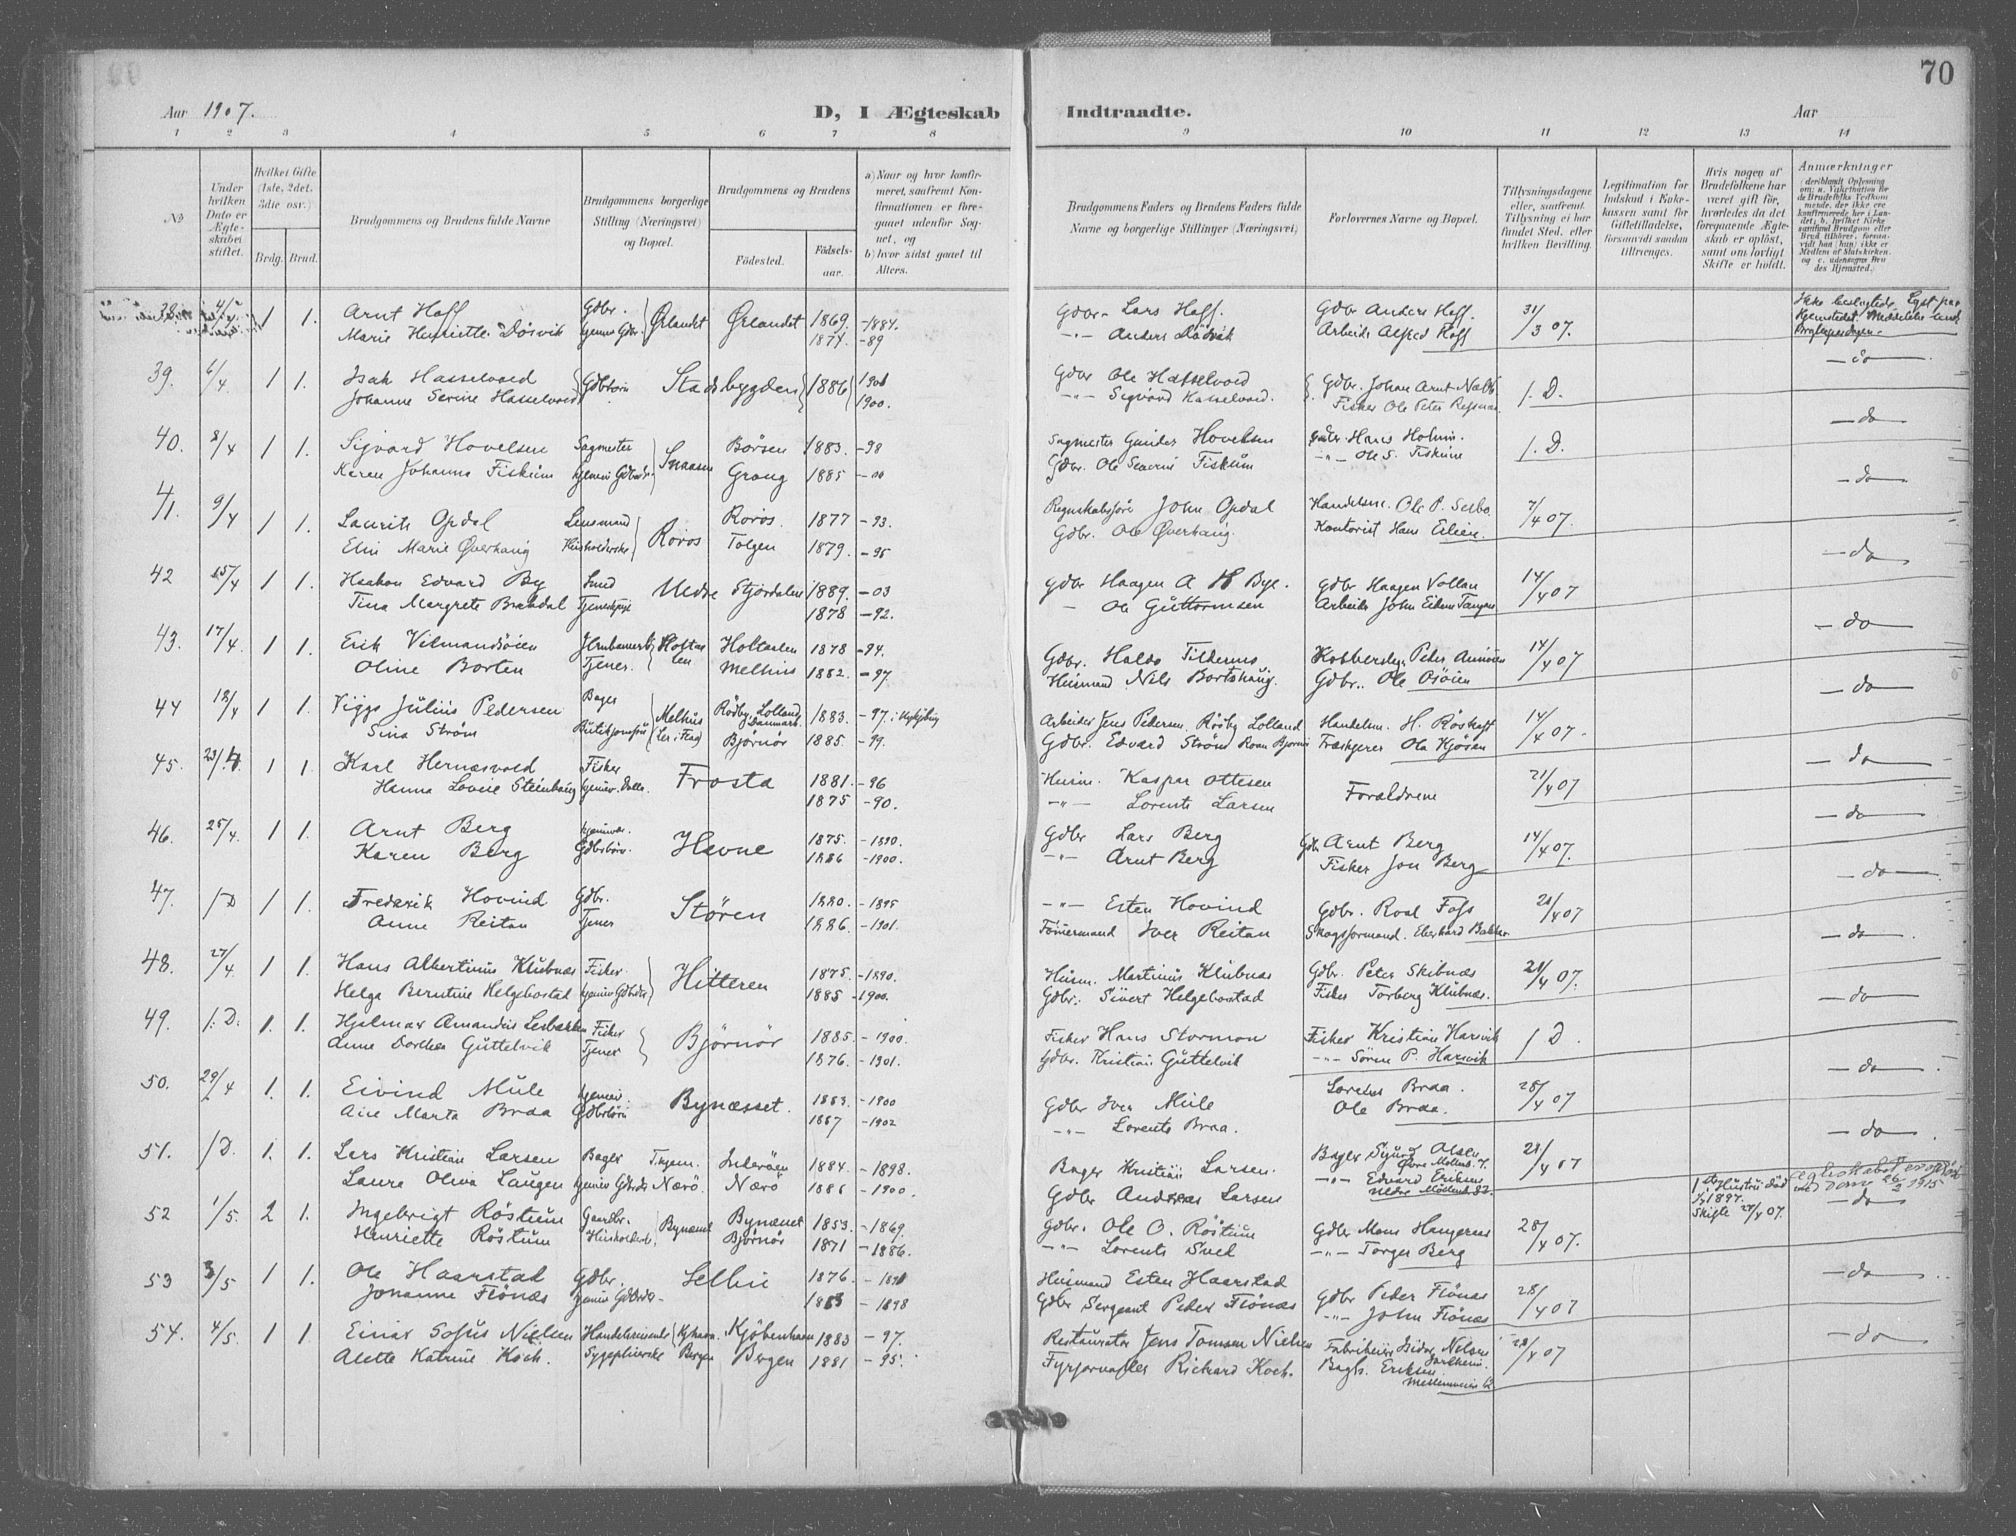 70
Aar 1907.
D, I Ægteskab Indtraadte.
Aar
1 2 3 4 5 6 7 8 9 10 11 12 13 14
No
Under hvilken Dato er Ægteskabet stiftet.
Hvilket Gifte (1ste, 2det, 3die osv.)
Brdg. Brud.
Brudgommens og Brudens fulde Navne
Brudgommens borgerlige Stilling (Næringsvei) og Bopæl.
Brudgommens og Brudens
Fødested. Fødselsaar.
a) Naar og hvor konfirmeret, saafremt Konfirmationen er foregaaet udenfor Sognet, og
b) hvor sidst gaaet til Alters.
Brudgommens Faders og Brudens Faders fulde Navne og borgerlige Stillinger (Næringsvei)
Forlovernes Navne og Bopæl.
Tillysningsdagene eller, saafremt Tillysning ei har fundet Sted, efter hvilken Bevilling.
Legitimation for Indskud i Enkekassen samt for Giftetilladelse, forsaavidt saadan tiltrænges.
Hvis nogen af Brudefolkene har været gift før, hvorledes da det foregaaende Ægteskab er opløst, samt om lovligt Skifte er holdt.
Anmærkninger
38. 4/4 1 1. Arnt Hoff Gdbr. Ørlandet Ørlandet 1869. -1884. Gdbr. Lars Hoff. Gdbr Anders Hoff. 31/3 07. Ikke beslægtede.
Marie Henriette Døsvik hjemv. Gdbr. 1874. -89 -"- Anders Døsvik Arbeider Alfred Hoff
39. 6/4 1 1. Isak Hasselvold Gdbrsøn Stadsbygden 1886 1901 Gdbr Ole Hasselvold Gdbr. Johan Arnt 1. D. -do-
Johanne Serine Hasselvold 1900. -"- Sigvard Hasselvold. Fisker Ole Peter
40. 8/4 1 1. Sigvard Hovelsen Sagmester Snaasen Børsen 1883. -98 Sagmester Gunder Hovelsen Hans Holmm. 1. D. -do-
Karen Johanna Fiskum hjemv. Gdbrds. Grong 1885 -00 Gdbr. Ole Severin Fiskum -"- Ole S. Fiskum
41. 9/4 1 1. Laurits Opdal Lensmand Røros Røros. 1877 -93. Regnskabsfører John Opdal Handelsm. Ole P. Selbo 7/4 07. -do-
Elin Marie Øverhaug Husholderske Tolgen 1879. -95 Gdbr. Ole Øverhaug. Kontorist Hans Eilien.
42 15/4 1 1. Haakon Edvard By Smed Nedre Stjørdalen 1889. -03 Gdbr Haagen A H Bye. Gdbr Haagen Vollan 14/4 07 -do-
Tina Margrete Brekdal Tjenestpige 1878 -92. - Ole Guttormsen Arbeider John Eidem
43. 17/4 1 1. Erik Vilmandsøien Grubearb. Holtaalen Holtaalen 1878 -94. Gdbr. Haldo Kobberslag. Peder 14/4 07 -do-
Oline Borten Tjener. Melhus 1882. -97 Husmand Nils Bortshaug. Gdbr. Ole Øsøien
44 18/4 1 1. Viggo Julius Pedersen Bager Melhus Rødby Lolland Danmark 1883. -97. i Nykjøbing Arbeider Jens Pedersen. Rødby Lolland Handelsm. H. Røskaft 14/4 07. -do-
Sina Strøm Butikjomfru Bjørnør 1885. -99. Gdbr. Edvard Strøm Roan Bjørnør Ola Kjøsen
45. 23/4 1 1. Karl Hernesvold Fisker Frosta 1881. -96 Husm. Kaspar Ottesen Forældrene 21/4 07 -do-
Hanna Lovise Steinhaug hjemv. Datter 1875 -90. -"- Lorents Larsen
46. 25/4 1 1. Arnt Berg hjemv. Hevne 1875. -1890. Gdbr Lars Berg Gdb Arnt Berg 14/4 07. -do-
Karen Berg Gdbrbørn 1886 -1900. -"- Arnt Berg Fisker Jon Berg
47. 1 D 1 1. Frederik Hovind Gdbr. Støren 1880. -1895 -"- Esten Hovind Gdbr. Roal Foss 21/4 07 -do-
Anne Reitan Tjener 1886. -1901. Tømermand Iver Reitan Skogsformand. Eberhard Bakker.
48. 27/4 1 1. Hans Albertinius Klubnæs Fisker Hitteren 1875. -1890. Husm. Martinus Klubnæs Gdb. Peter Skibnæs 21/4 07. -do-
Helga Berntine Helgebostad hjemv. Gdbrds 1885 -1900. Gdbr. Sivert Helgebostad Fisker Torberg Klubnæs.
49. 1. D. 1. 1. Hjalmar Amandus Lesbakken Fisker Bjørnør 1885. -1900. Fisker Hans Stormon Fisker Kristian Harsvik 1 D. -do-
Anne Dorthea Guttelvik Tjener 1876. -1901. Gdbr. Kristian Guttelvik -"- Søren P. Harsvik
50. 29/4 1. 1. Eivind Mule hjemv. Bynæsset. 1883. -1900 Gdbr Iver Mule Lorents Braa. 28/4 07 -do-
Marta Braa Gdbrbørn 1887 -1902 -"- Lorents Braa. Ole Braa.
51. 1 D. 1. 1. Lars Kristian Larsen Bager Tr.hjem. Inderøen 1884. -1898. Bager Kristian Larsen. Bager Sigurd Olsen Øvre Møllenb. 7. 21/4 07 -do-
Laura Olina Laugen hjemv. Gdbrds Nærø. Nærø 1886 -1900. Gdbr Andreas Larsen -"- Edvard Eriksen Nedre Møllenb. 82. Ægteskabet er opløst ved Dom 26/2 1915
52 1/5. 2 1. Ingebrigt Røstum Gaardbr. Bynæsset Bynæsset 1853. -1869. Gdbr. Ole O. Røstum Gdbr Mons Hangeraas 28/4 07. 1ste Hustru død 1897. Skifte 27/4 07. -do-
Henriette Røstum Husholderske Bjørnør 1871 -1886. -"- Lorents Sved -"- Torger Berg
53 3/5 1 1. Ole Haarstad Gdbr. Selbu 1876. -1891 Husmand Esten Haarstad Gdbr Peder Flønæs 28/4 07 -do-
Johanne Flønæs hjemv. Gdbrds- 1883 -1898 Gdbr Sergeant Peder Flønæs -"- John Flønæs
54. 4/5. 1 1. Einar Sofus Nielsen Handelsreisende Kjøbenhavn 1883 -97. Restauratør Jens Tomsen Nielsen Fabrikeier Nelsen 28/4 07 -do-
Alette Katrine Koch. Sygepleierske Bergen Bergen 1881 -95. Fyrforvalter Richard Koch. Bagm. Eriksen Mellemveien 62